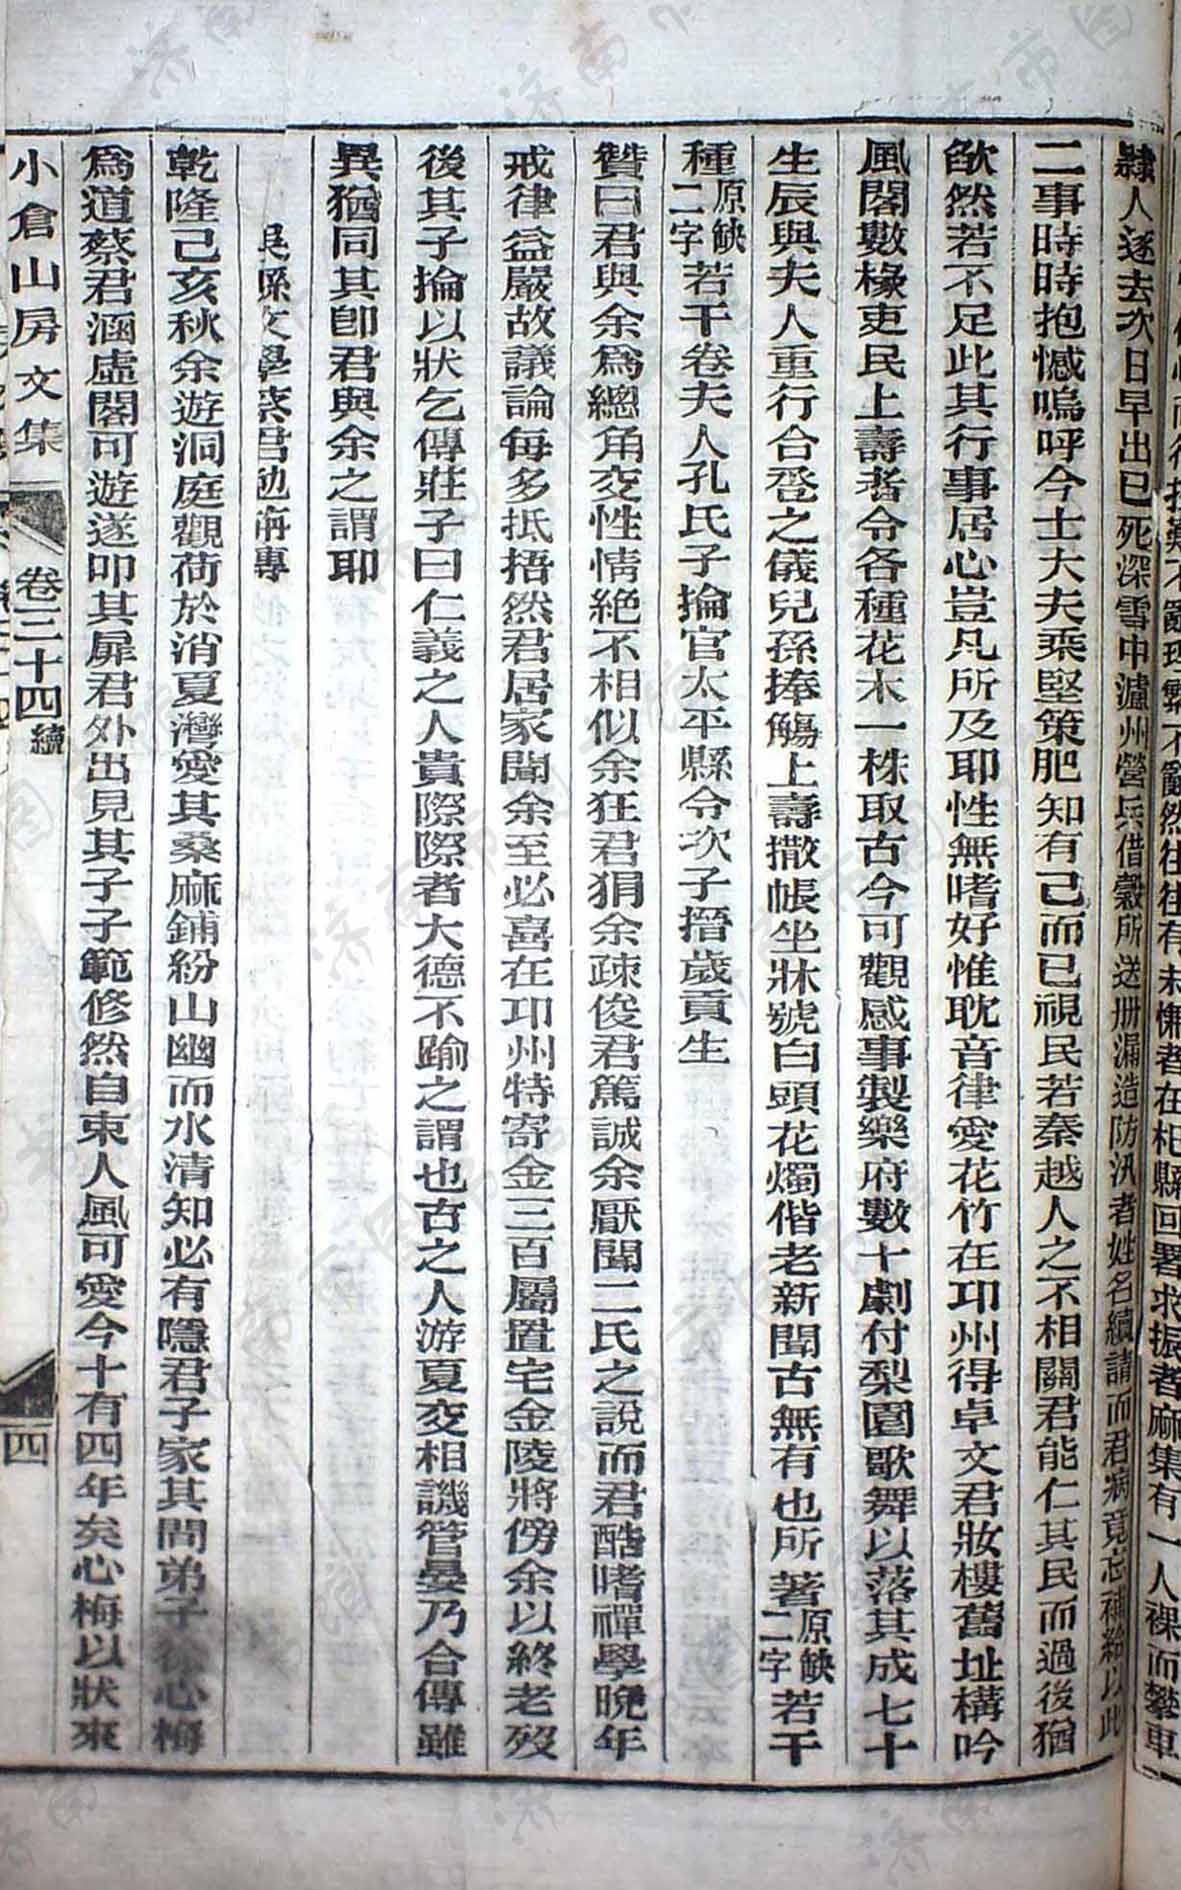 而徃
不亂理
不亂然往往有未愜者在杞縣回署求振者麻集有一人裸而攀車
隸人逐去次日早出已死深雪中瀘州營兵借穀所送冊漏造防汛者姓名續請而君病竟忘補給以此
二事時時抱憾嗚呼今士大夫乘堅策肥知有己而已視民若秦越人之不相關君能仁其民而過後猶
欿然若不足此其行事居心豈凡所及耶性無嗜好惟耽音律愛花竹在卭州得卓文君妝樓舊址構吟
風閣數椽吏民上壽者令各種花木一株取古今可觀感事製樂府數十劇付梨園歌舞以落其成七十
生辰與夫人重行合卺之儀兒孫捧觴上壽撒帳坐牀號白頭花燭偕老新聞古無有也所著原缺二字若干
種原缺二字若干卷夫人孔氏子掄官太平縣令次子搢歲貢生
贊曰君與余爲總角交性情絕不相似余狂君狷余疎俊君篤誠余厭聞二氏之說而君酷嗜禪學晚年
戒律益嚴故議論每多抵捂然君居家聞余至必喜在卭州特寄金三百屬置宅金陵將傍余以終老歿
後其子掄以狀乞傳莊子曰仁義之人貴際際者大德不踰之謂也古之人游夏交相譏管晏乃合傳雖
異猶同其卽君與余之謂耶
吳縣文學蔡君勉旃傳
乾隆己亥秋余遊洞庭觀荷於消夏灣愛其桑麻鋪紛山幽而水清知必有隱君子家其間弟子徐心梅
爲道蔡君涵虛閣可遊遂叩其扉君外出見其子子範修然自束人風可愛今十有四年矣心梅以狀來
小倉山房文集
卷三十四續
四